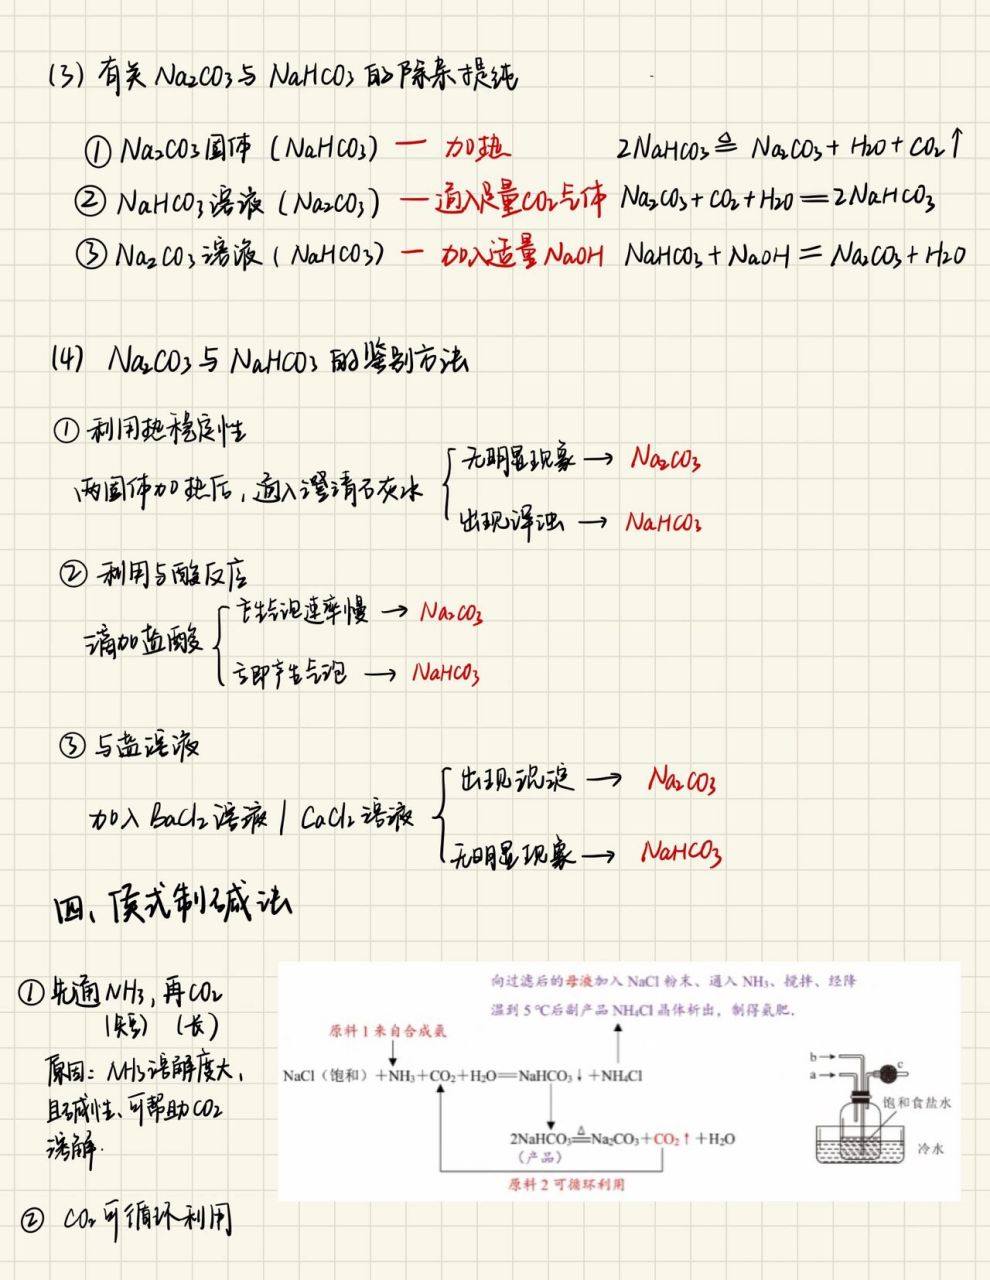 (3) 有关 Na₂CO₃与 NaHCO₃ 的除杂提纯
① Na₂CO₃固体 (NaHCO₃) — 加热 2NaHCO₃ ≜ Na₂CO₃ + H₂O + CO₂↑
② NaHCO₃溶液 (Na₂CO₃) — 通入足量CO₂气体 Na₂CO₃ + CO₂ + H₂O = 2NaHCO₃
③ Na₂CO₃溶液 (NaHCO₃) — 加入适量NaOH NaHCO₃ + NaOH = Na₂CO₃ + H₂O
(4) Na₂CO₃与 NaHCO₃ 的鉴别方法
① 利用热稳定性
两固体加热后, 通入澄清石灰水
无明显现象 → Na₂CO₃
出现浑浊 → NaHCO₃
② 利用与酸反应
滴加盐酸
产生气泡速率慢 → Na₂CO₃
立即产生气泡 → NaHCO₃
③ 与盐溶液
加入 BaCl₂溶液 / CaCl₂溶液
出现沉淀 → Na₂CO₃
无明显现象 → NaHCO₃
四、侯式制碱法
① 先通NH₃, 再CO₂
(短) (长)
原因: NH₃溶解度大,
且碱性、可帮助CO₂
溶解.
② CO₂可循环利用
向过滤后的母液加入 NaCl 粉末、通入 NH₃、搅拌、经降
温到 5 ℃后副产品 NH₄Cl 晶体析出，制得氮肥.
原料 1 来自合成氨
NaCl（饱和）+NH₃+CO₂+H₂O═NaHCO₃↓+NH₄Cl
2NaHCO₃≜Na₂CO₃+CO₂↑+H₂O
（产品）
原料 2 可循环利用
b
a
c
饱和食盐水
冷水